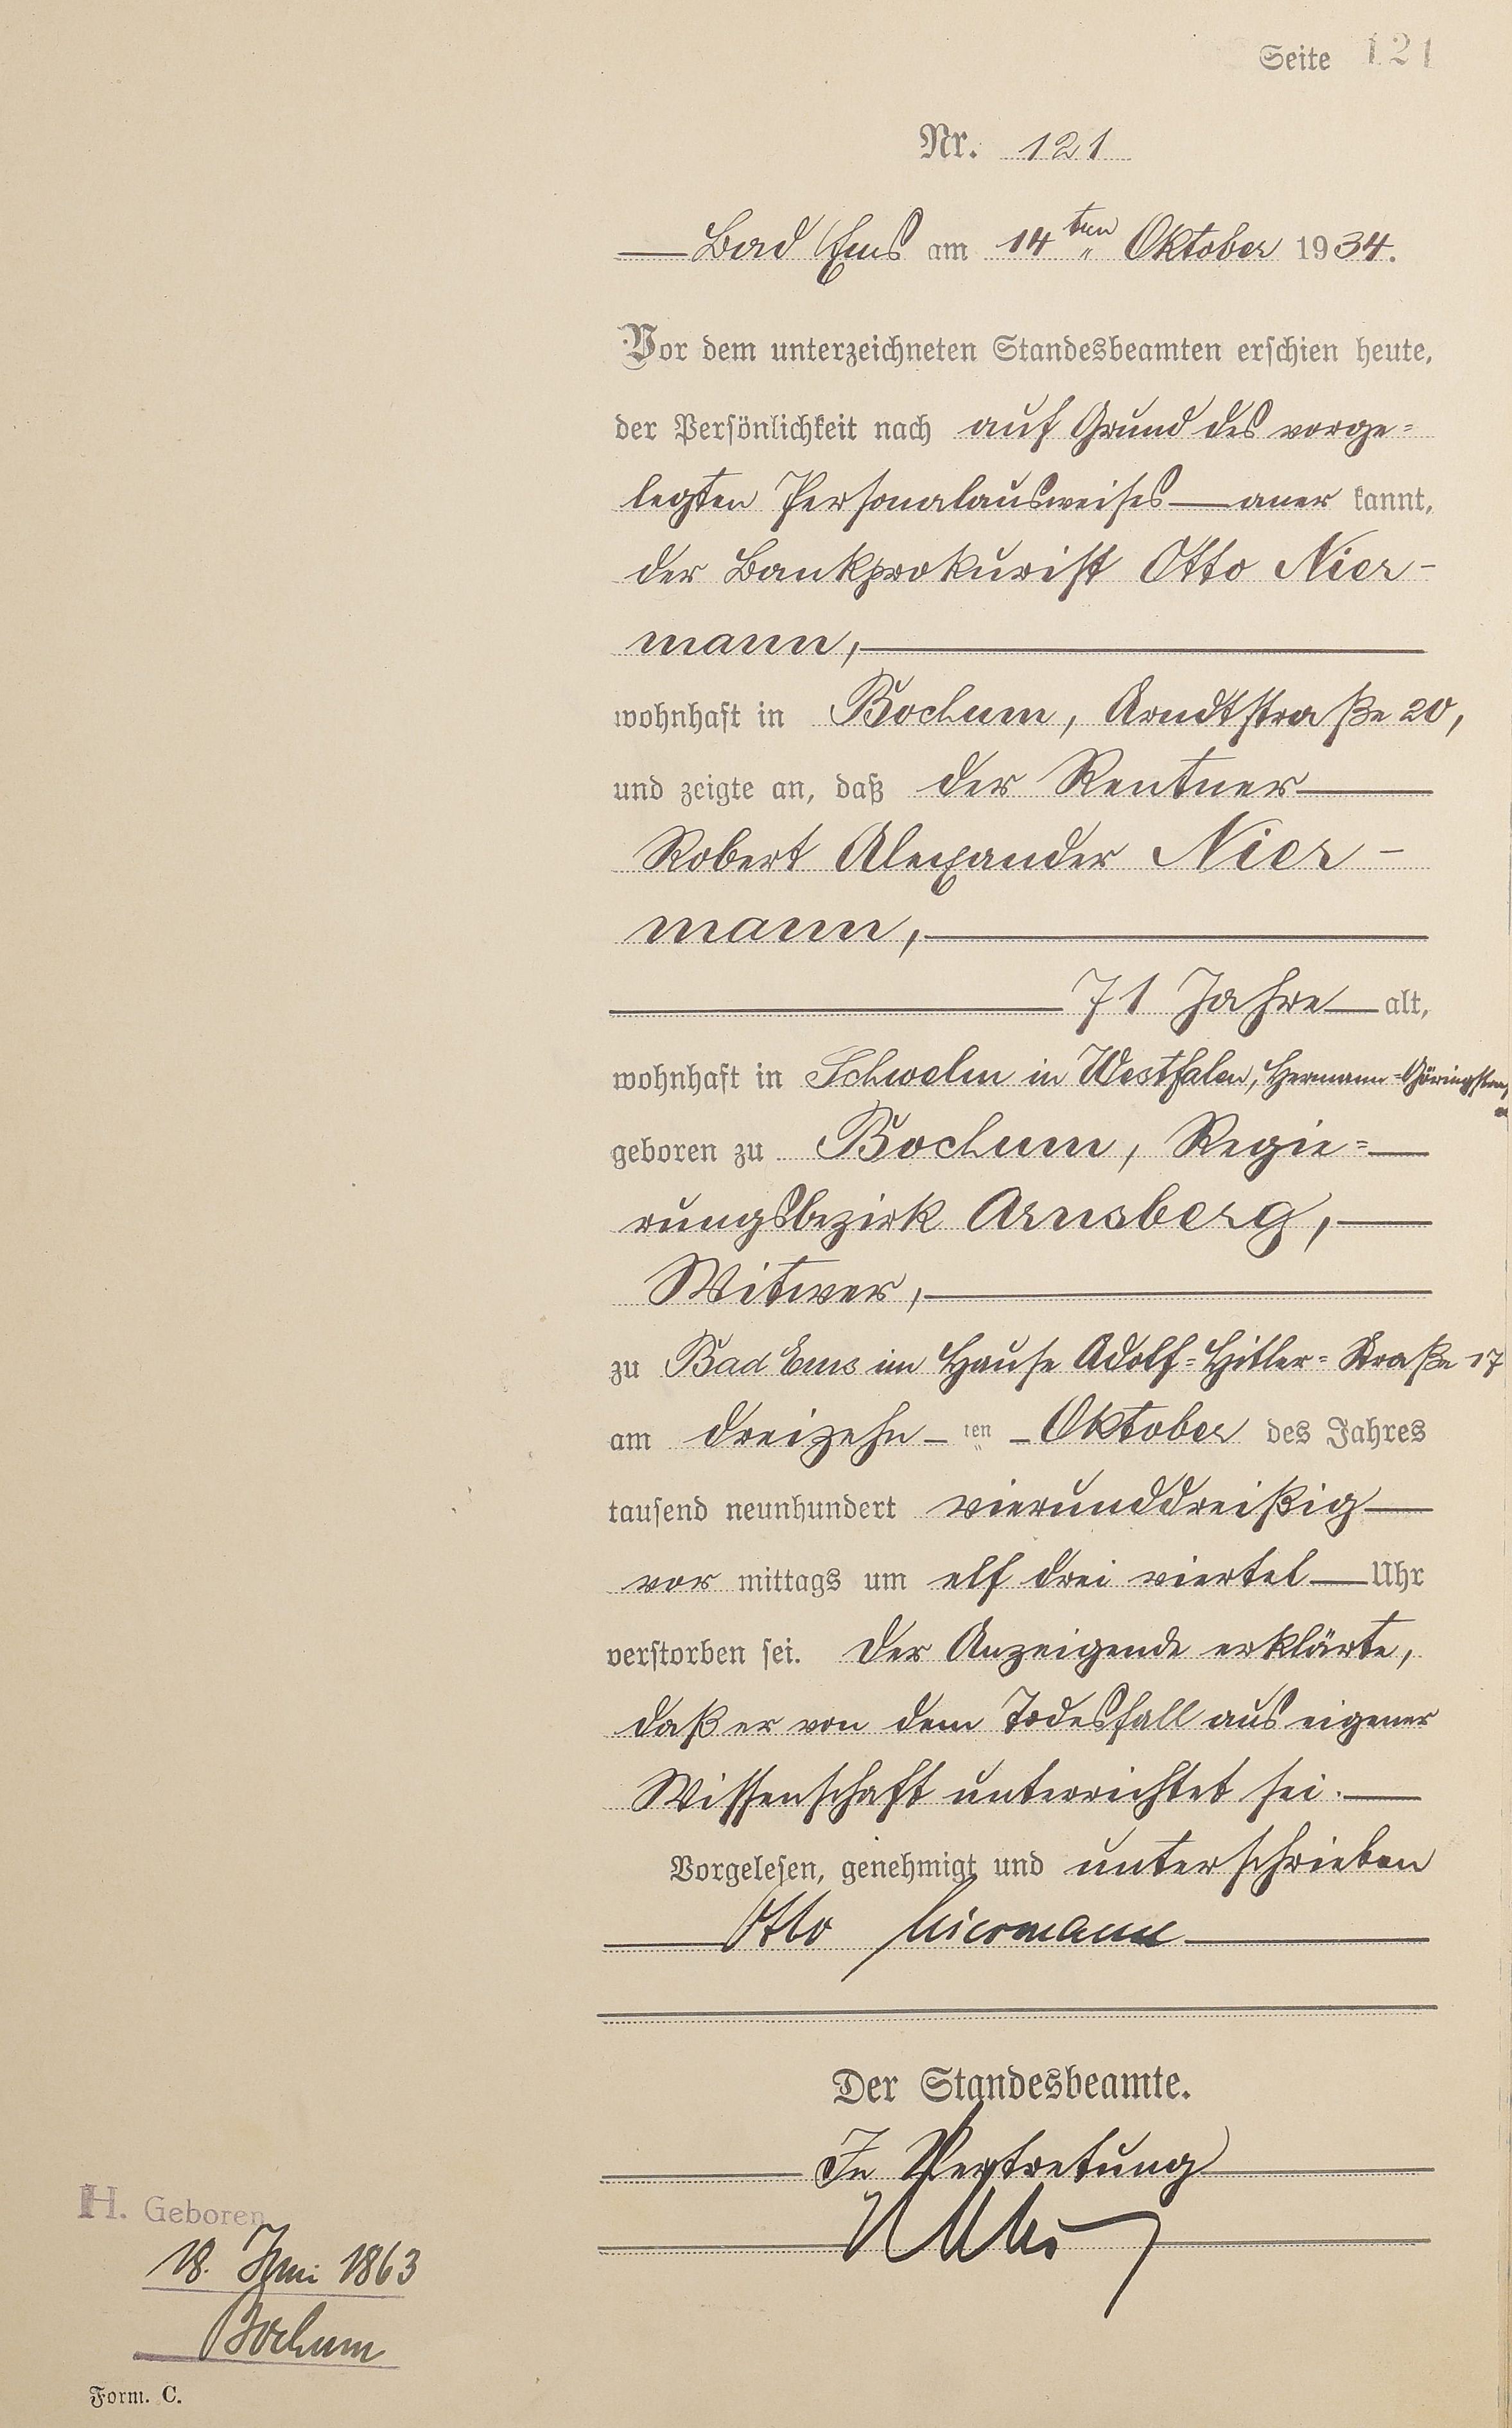 Seite 121
Nr. 121
Bad Ems am 14ten Oktober 1934.
Vor dem unterzeichneten Standesbeamten erschien heute,
der Persönlichkeit nach auf Grund des vorge=
legten Personalausweises — aner kannt,
der Bankprokurist Otto Nier-
mann,
wohnhaft in Bochum, Arndtstraße 20,
und zeigte an, daß der Rentner
Robert Alexander Nier-
mann,
71 Jahre alt,
wohnhaft in Schwelm in Westfalen, Hermann=Göringstraße
geboren zu Bochum, Regie=
rungsbezirk Arnsberg,
Witwer,
zu Bad Ems im Hause Adolf=Hitler=Straße 17
am dreizehn ten Oktober des Jahres
tausend neunhundert vierunddreißig
vor mittags um elf drei viertel Uhr
verstorben sei. Der Anzeigende erklärte,
daß er von dem Todesfall aus eigener
Wissenschaft unterrichtet sei.
Vorgelesen, genehmigt und unterschrieben
Otto Niermann
Der Standesbeamte.
In Vertretung
H. Geboren
18. Juni 1863
Bochum
Form. C.